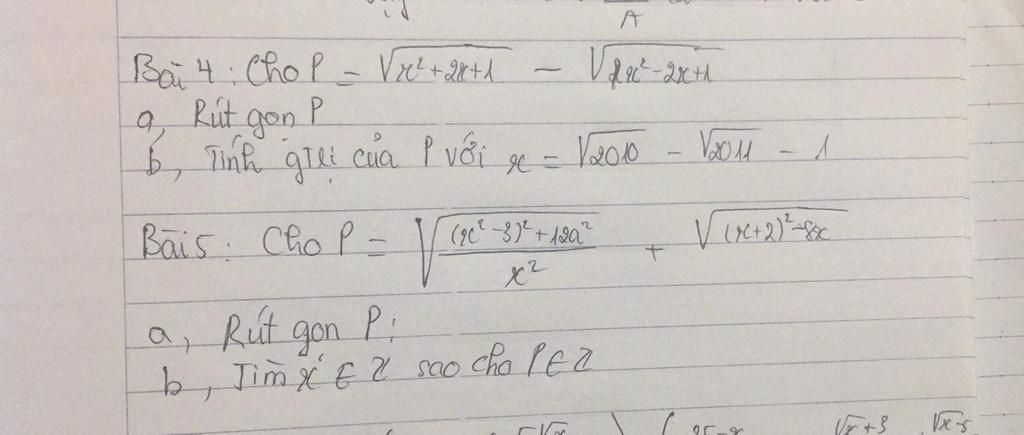 A
Bài 4 : Cho P = √(x²+2x+1) − √(x²-2x+1)
a, Rút gon P
b, Tính gTrị của P với x = √2010 − √2011 − 1
Bài 5 : Cho P = √(((x²-3)²+12a²)/x²) + √((x+2)²-8x)
a, Rút gon P;
b, Tìm x ∈ Z sao cho P ∈ Z
√x+3 √x-5